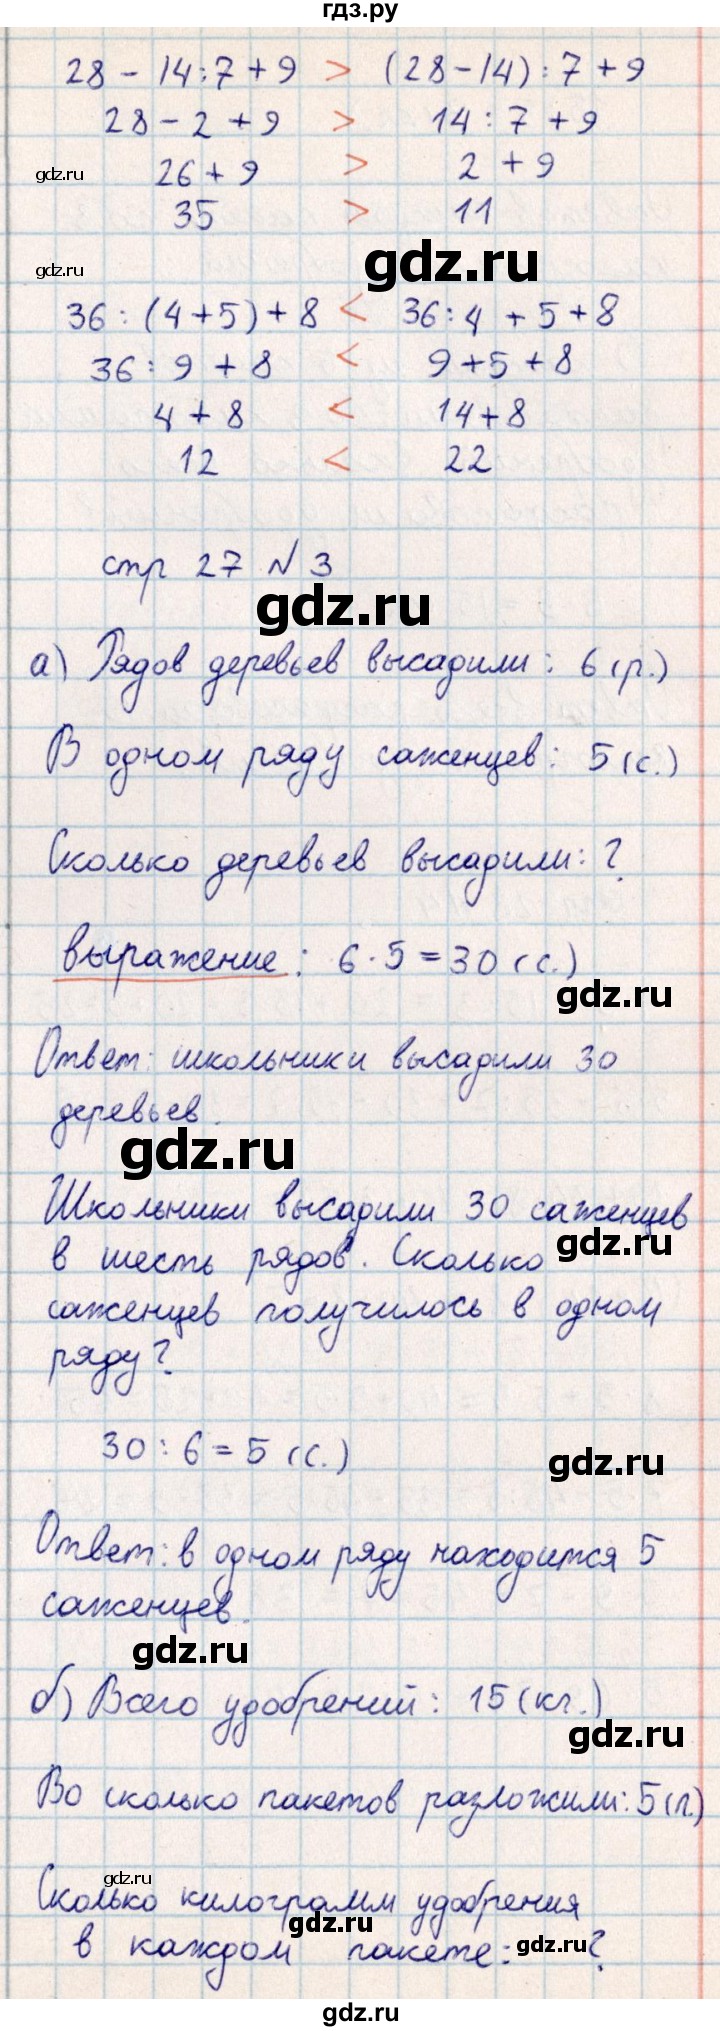 гдз.ру
28 - 14 : 7 + 9 > (28 - 14) : 7 + 9
28 - 2 + 9 > 14 : 7 + 9
gdz.ru 26 + 9 > 2 + 9
35 > 11
gdz.ru
gdz.ru
36 : (4 + 5) + 8 < 36 : 4 + 5 + 8
36 : 9 + 8 < 9 + 5 + 8
4 + 8 < 14 + 8
12 < 22
стр 27 N 3
gdz.ru
а) Рядов деревьев высадили: 6 (р.)
В одном ряду саженцев: 5 (с.)
Сколько деревьев высадили: ?
выражение: 6 · 5 = 30 (с.)
gdz.ru
Ответ: школьники высадили 30
деревьев.
gdz.ru
Школьники высадили 30 саженцев
gdz.ru
в шесть рядов. Сколько
саженцев получилось в одном
ряду?
30 : 6 = 5 (с.)
gdz.ru
Ответ: в одном ряду находится 5
саженцев.
gdz.ru
б) Всего удобрений: 15 (кг.)
gdz.ru
Во сколько пакетов разложили: 5 (п.)
gdz.ru
Сколько килограмм удобрения
gdz.ru
в каждом пакете: ?
gdz.ru
gdz.ru